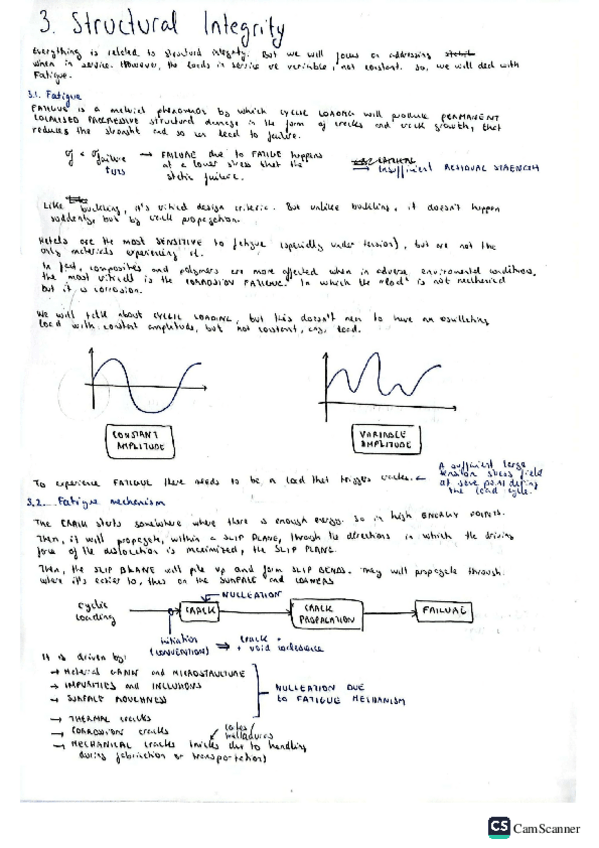 3. Structural Integrity
Everything is related to structural integrity. But we will focus on addressing
when in service. However, the loads in service are variable, not constant. So, we will deal with
Fatigue.
3.1. Fatigue
FATIGUE is a material phenomenon by which CYCLIC LOADING will produce PERMANENT
LOCALISED PROGRESSIVE structural damage in the form of cracks and crack growth, that
reduces the strength and so can lead to failure.
σf < σfailure → FAILURE due to FATIGUE happens
at a lower stress that the
static failure.
⇒ Insufficient RESIDUAL STRENGTH
Like buckling, it's critical design criteria. But unlike buckling, it doesn't happen
suddenly, but by crack propagation.
Metals are the most SENSITIVE to fatigue (specially under tension), but are not the
only materials experiencing it.
In fact, composites and polymers are more affected when in adverse environmental conditions,
the most critical is the CORROSION FATIGUE. In which the "load" is not mechanical
but it is corrosion.
We will talk about CYCLIC LOADING, but this doesn't mean to have an oscillating
load with constant amplitude, but not constant, load.
CONSTANT
AMPLITUDE
VARIABLE
AMPLITUDE
To experience FATIGUE there needs to be a load that triggers cracks. ←
A sufficient large
tension stress field
at some point during
the load cycle.
3.2. Fatigue mechanism
The CRACK starts somewhere where there is enough energy. So in high ENERGY POINTS.
Then, it will propagate, within a SLIP PLANE, through to directions in which the driving
force of the dislocation is maximized, the SLIP PLANE.
Then, the SLIP PLANE will pile up and form SLIP BANDS. They will propagate through
where it's easier to, thus on the SURFACE and CORNERS
NUCLEATION
cyclic
loading
CRACK
CRACK
PROPAGATION
FAILURE
initiation
(CONVENTION)
⇒ crack +
+ void coalescence
It is driven by:
→ Material GRAIN and MICROSTRUCTURE
→ IMPURITIES and INCLUSIONS
→ SURFACE ROUGHNESS
NUCLEATION DUE
to FATIGUE MECHANISM
→ THERMAL cracks
→ CORROSIONS cracks
→ MECHANICAL cracks (nicks due to handling
during fabrication or transportation)